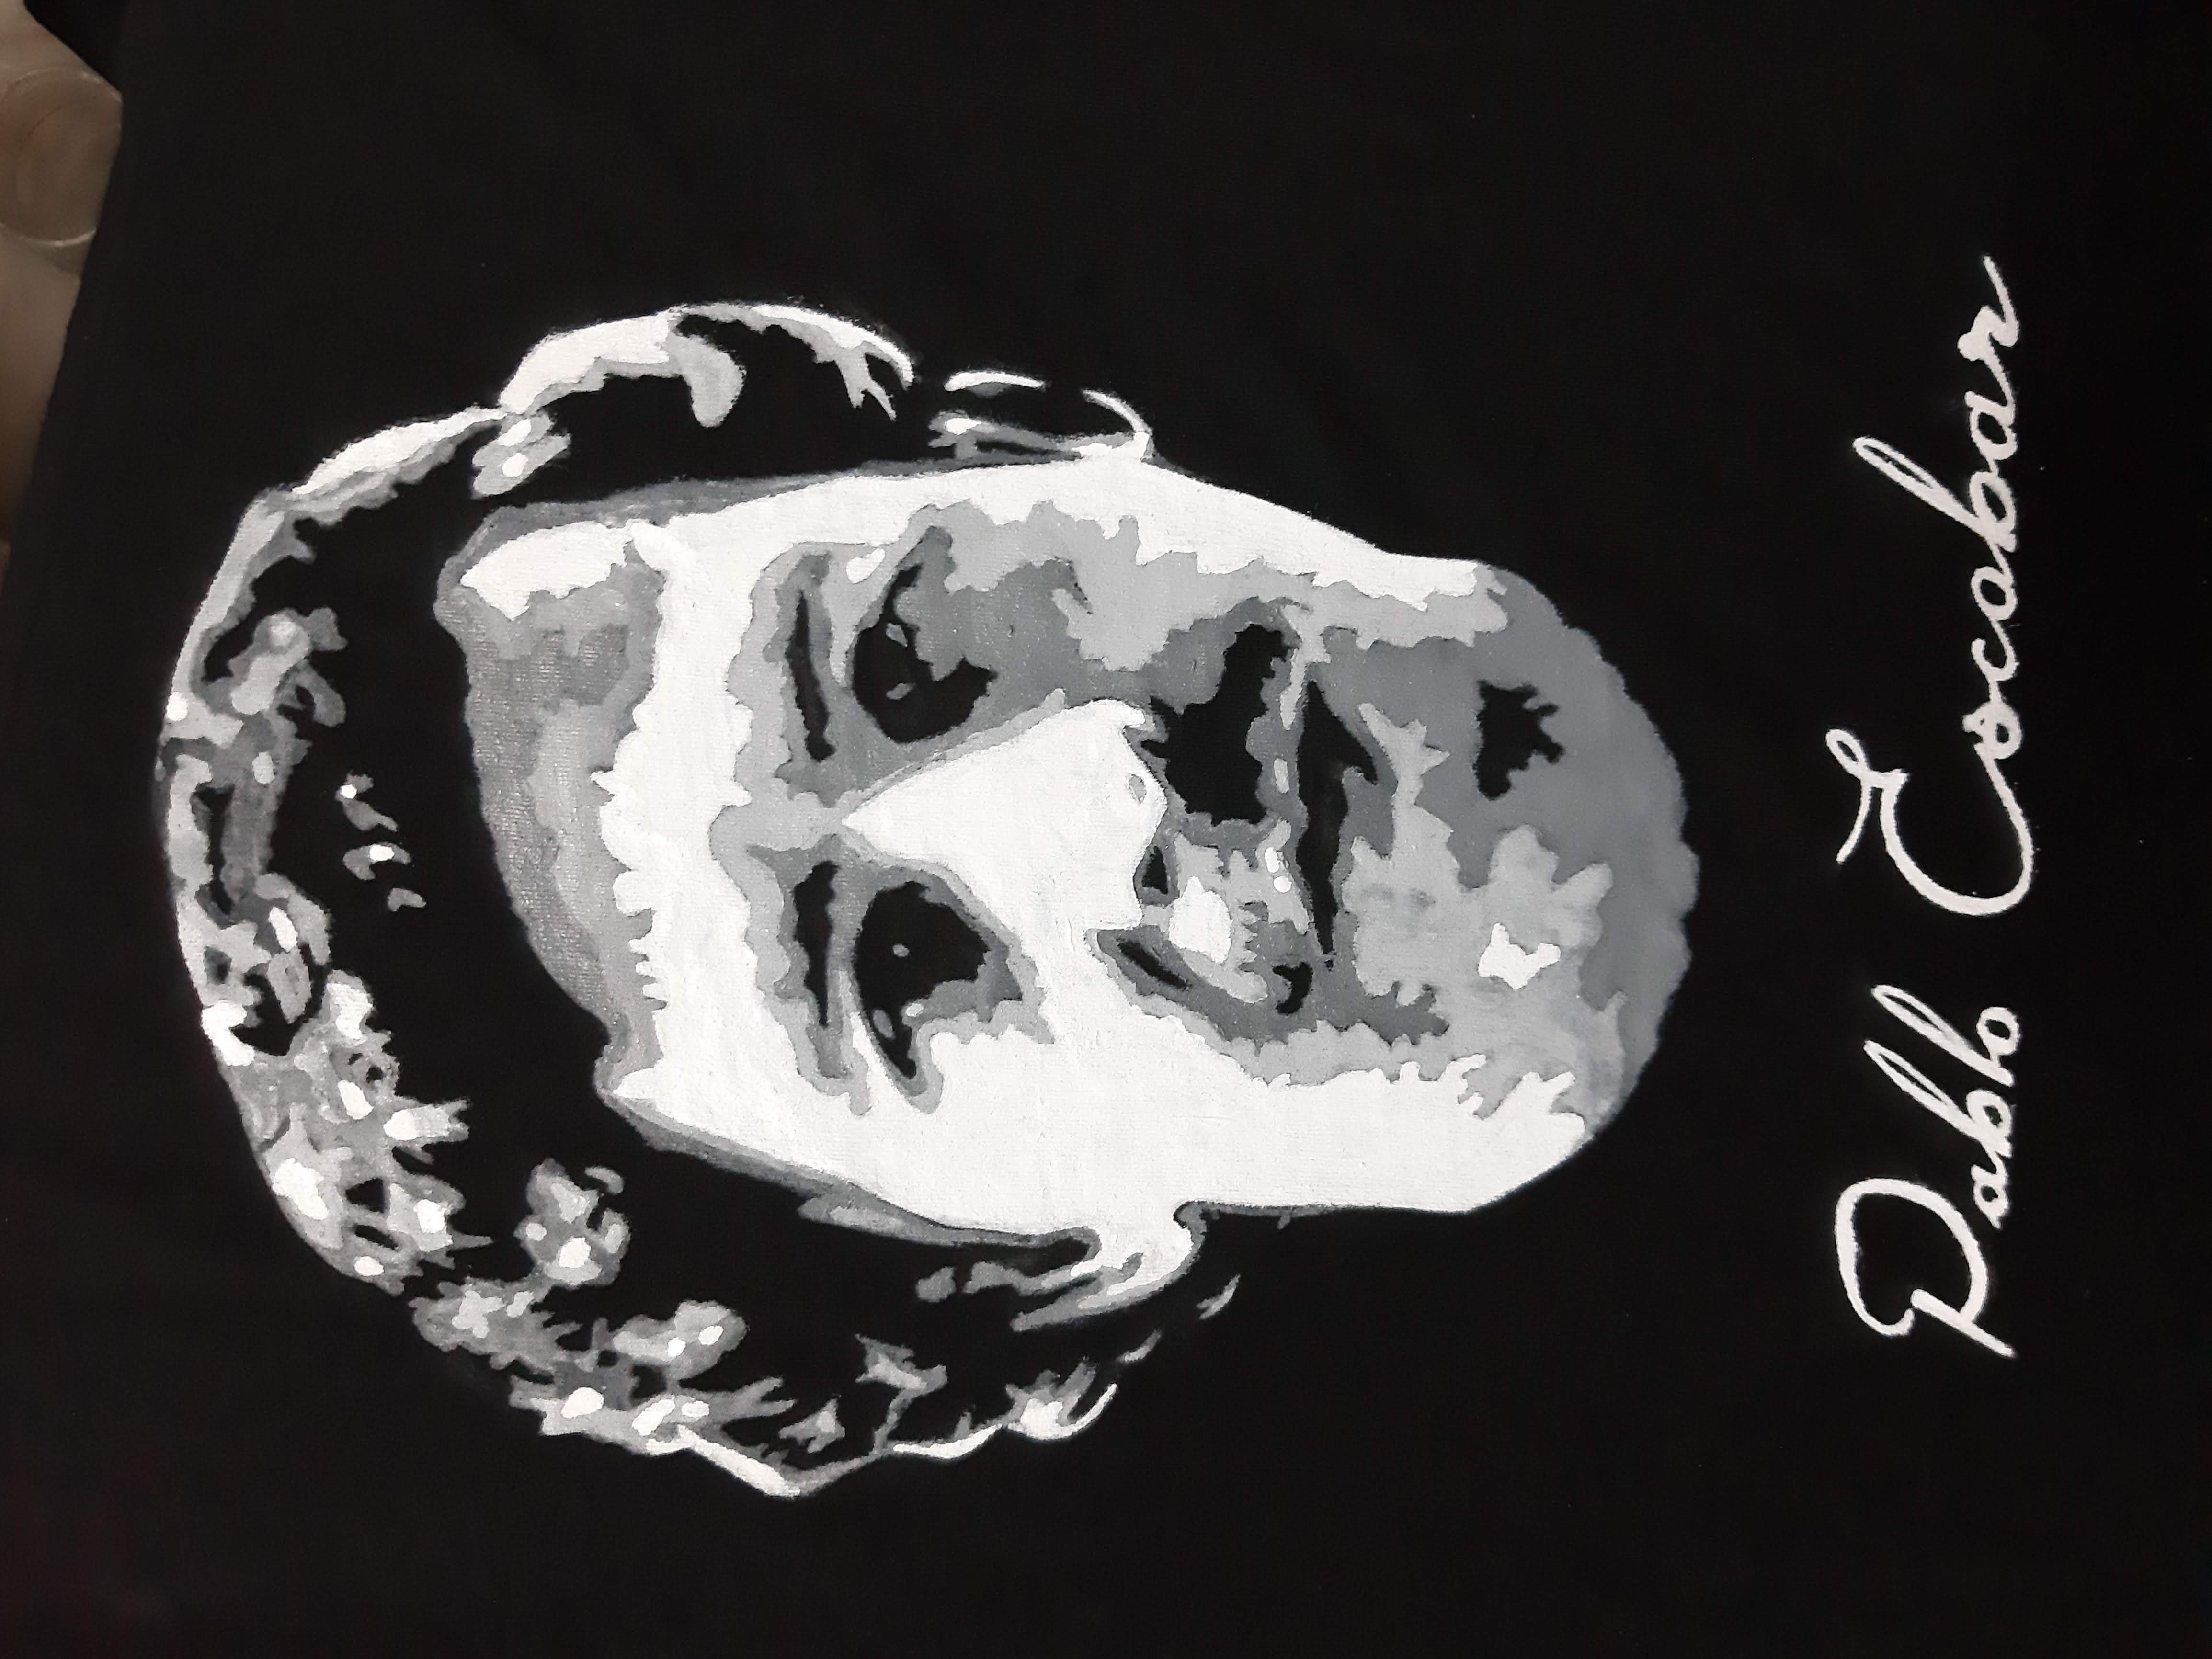 Pablo Escobar